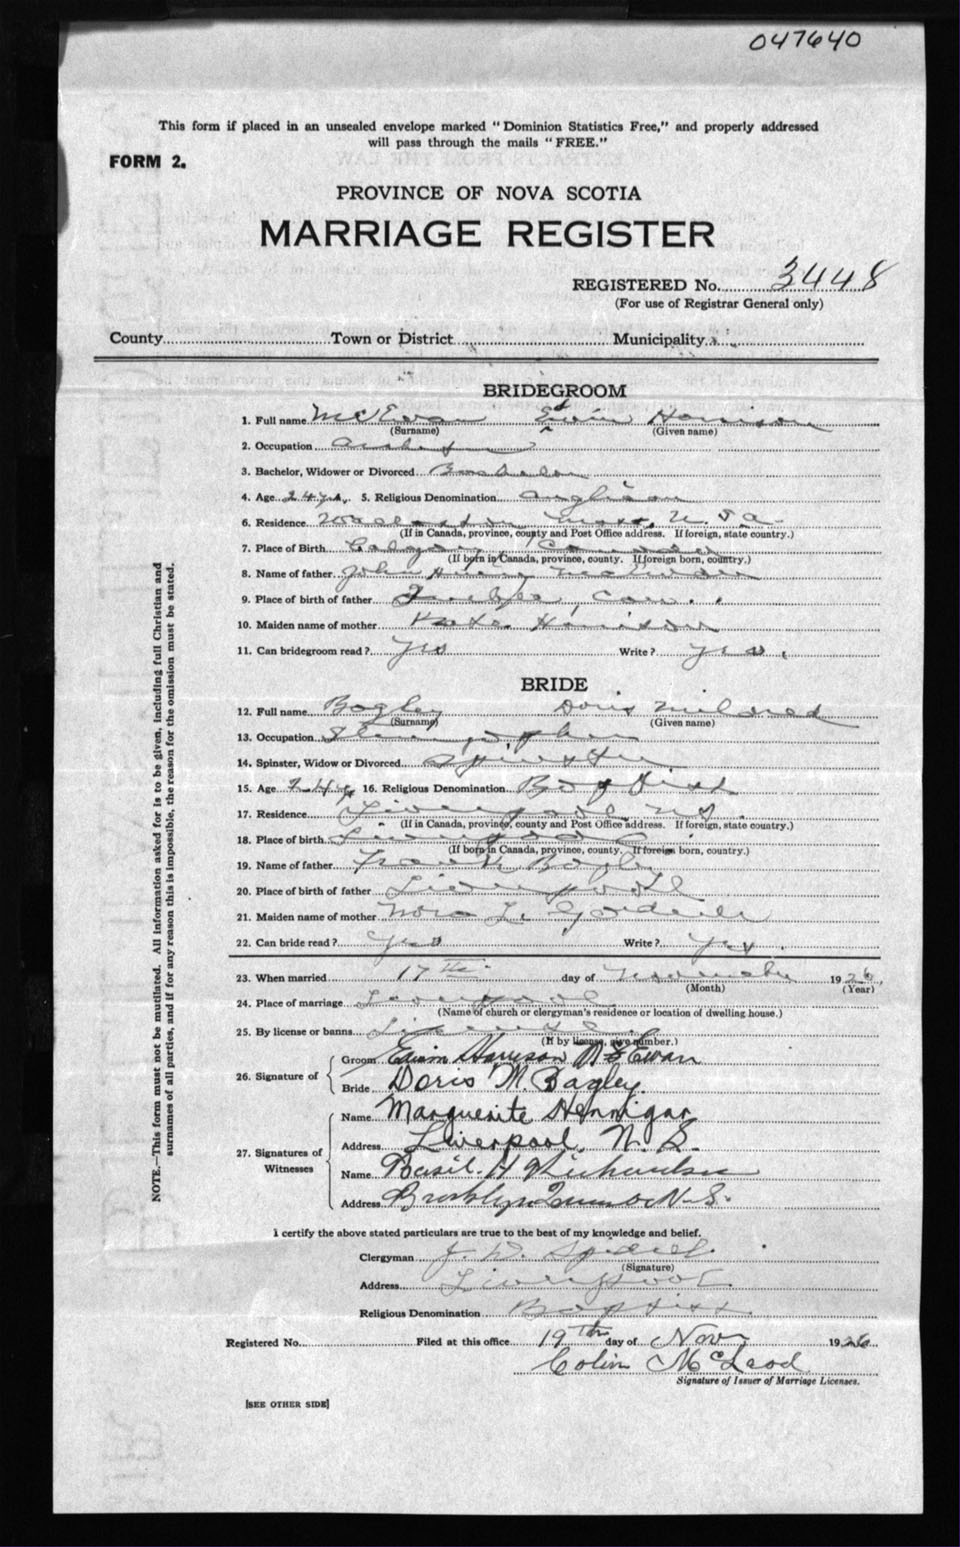 047640
This form if placed in an unsealed envelope marked "Dominion Statistics Free," and properly addressed
will pass through the mails "FREE."
FORM 2.
PROVINCE OF NOVA SCOTIA
MARRIAGE REGISTER
REGISTERED No. 3448
(For use of Registrar General only)
County Town or District Municipality
BRIDEGROOM
1. Full name McEwan Edwin Harrison
(Surname) (Given name)
2. Occupation
3. Bachelor, Widower or Divorced Bachelor
4. Age 24 yrs. 5. Religious Denomination Anglican
6. Residence Wollaston Mass. U.S.A.
(If in Canada, province, county and Post Office address. If foreign, state country.)
7. Place of Birth Calgary Canada
(If born in Canada, province, county. If foreign born, country.)
8. Name of father John Henry McEwan
9. Place of birth of father Quebec, Can.
10. Maiden name of mother Kate Harrison
11. Can bridegroom read? Yes Write? yes.
BRIDE
12. Full name Bagley Doris Mildred
(Surname) (Given name)
13. Occupation Stenographer
14. Spinster, Widow or Divorced Spinster
15. Age 24 16. Religious Denomination Baptist
17. Residence Liverpool N.S.
(If in Canada, province, county and Post Office address. If foreign, state country.)
18. Place of birth Liverpool
(If born in Canada, province, county. If foreign born, country.)
19. Name of father Frank Bagley
20. Place of birth of father Liverpool
21. Maiden name of mother Nora L.
22. Can bride read? Yes Write? Yes.
23. When married 17th day of November 1926
(Month) (Year)
24. Place of marriage Liverpool
(Name of church or clergyman's residence or location of dwelling house.)
25. By license or banns License
(If by license, give number.)
26. Signature of Groom Edwin Harrison McEwan
Bride Doris M. Bagley.
27. Signatures of Witnesses
Name Marguerite Hennigar
Address Liverpool, N. S.
Name Basil H Richardson
Address Brooklyn Queens Co N.S.
I certify the above stated particulars are true to the best of my knowledge and belief.
Clergyman J. W.
(Signature)
Address Liverpool
Religious Denomination Baptist
Registered No. Filed at this office 19th day of Nov 1926
Colin McLeod
Signature of Issuer of Marriage Licenses.
[SEE OTHER SIDE]
NOTE.—This form must not be mutilated. All information asked for is to be given, including full Christian and
surnames of all parties, and if for any reason this is impossible, the reason for the omission must be stated.